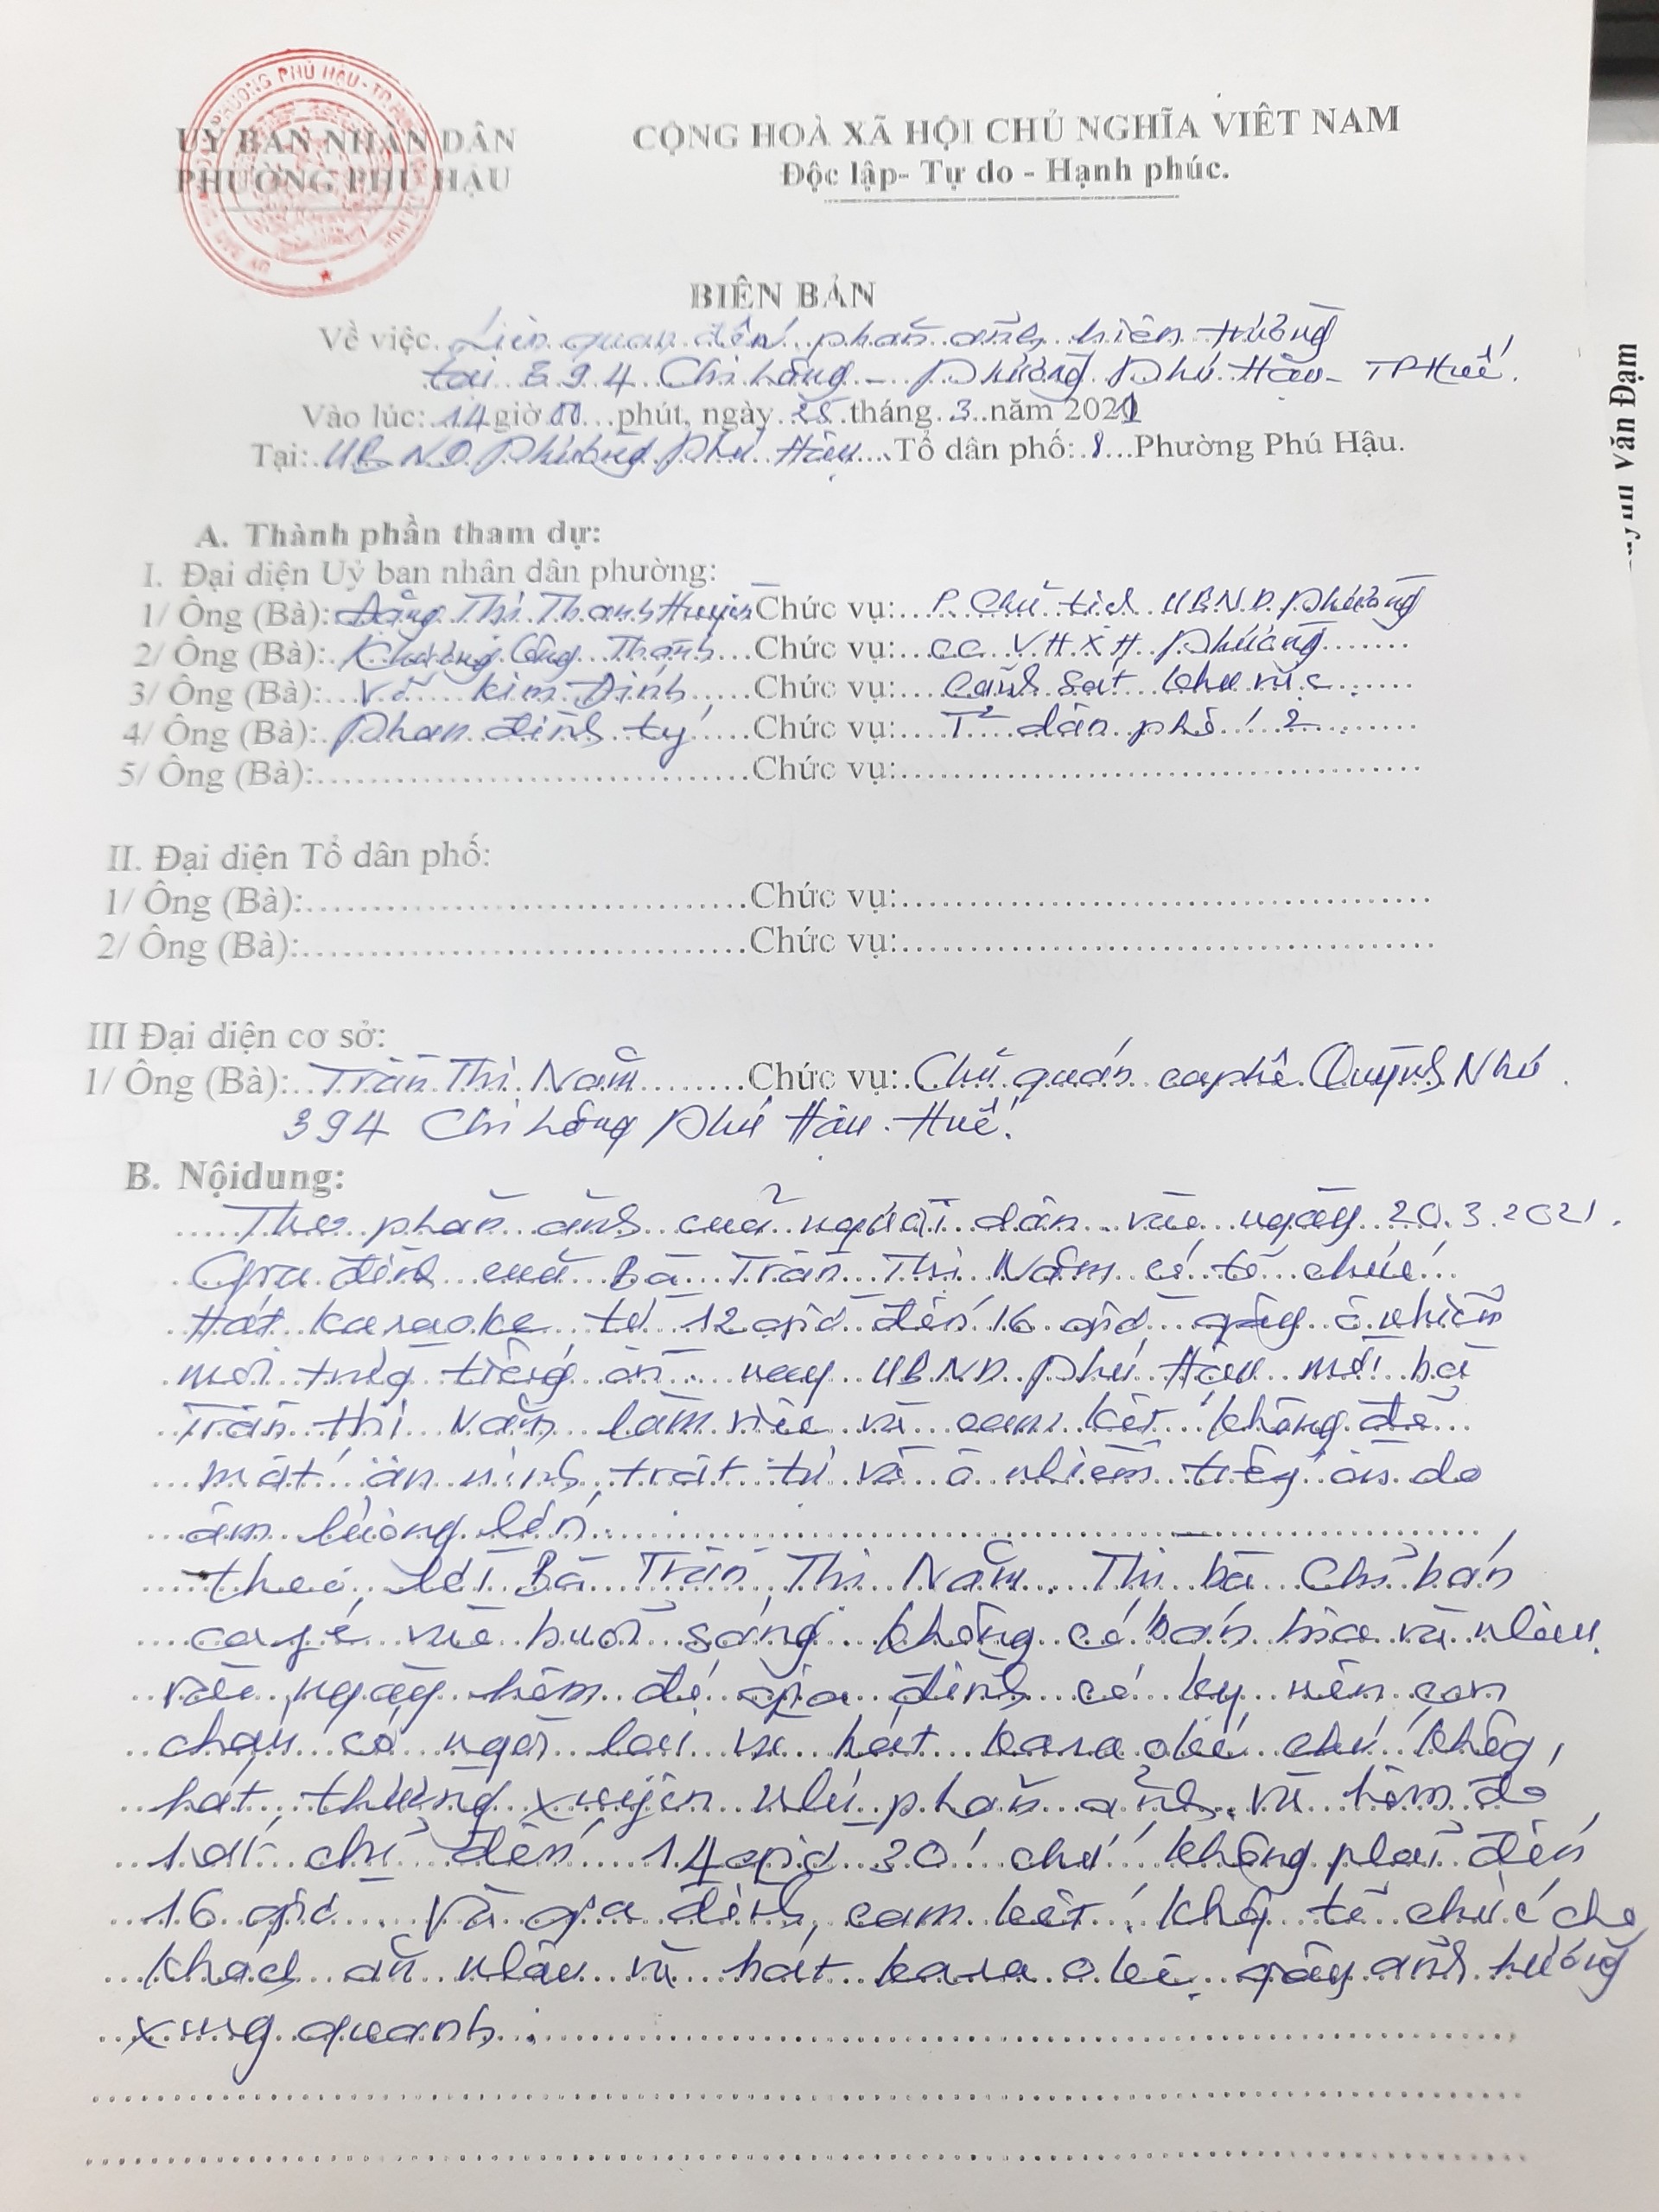 UỶ BAN NHÂN DÂN
PHƯỜNG PHÚ HẬU
CỘNG HOÀ XÃ HỘI CHỦ NGHĨA VIỆT NAM
Độc lập- Tự do - Hạnh phúc.
BIÊN BẢN
Về việc Liên quan đến phản ánh hiện trường
tại 394 Chi Lăng - Phường Phú Hậu - TP Huế.
Vào lúc: 14 giờ 00 phút, ngày 25 tháng 3 năm 2021
Tại: UBND Phường Phú Hậu Tổ dân phố: 8 Phường Phú Hậu.
A. Thành phần tham dự:
I. Đại diện Uỷ ban nhân dân phường:
1/ Ông (Bà): Đặng Thị Thanh Huyền Chức vụ: P. Chủ tịch UBND phường
2/ Ông (Bà): Công Thành Chức vụ: CC VHXH phường
3/ Ông (Bà): Võ Kim Định Chức vụ: Cảnh sát khu vực
4/ Ông (Bà): Phan đình tý Chức vụ: T² dân phố 2
5/ Ông (Bà): Chức vụ:
II. Đại diện Tổ dân phố:
1/ Ông (Bà): Chức vụ:
2/ Ông (Bà): Chức vụ:
III Đại diện cơ sở:
1/ Ông (Bà): Trần Thị Năm Chức vụ: Chủ quán caphê Quỳnh Như
394 Chi Lăng Phú Hậu. Huế.
B. Nộidung:
Theo phản ánh của người dân vào ngày 20.3.2021.
Gia đình của Bà Trần Thị Năm có tổ chức
Hát karaoke từ 12 giờ đến 16 giờ gây ô nhiễm
môi trường tiếng ồn. nay UBND Phú Hậu mời bà
Trần thị Năm làm việc và cam kết không để
mất an ninh trật tự và ô nhiễm tiếng ồn do
âm lượng lớn.
theo lời Bà Trần Thị Năm. Thì bà Chỉ bán
cafe vào buổi sáng không có bán bia và nhậu.
vào ngày hôm đó gia đình có kỵ nên con
cháu có ngồi lại và hát karaoke chứ không
hát thường xuyên như phản ánh. và hôm đó
hát chỉ đến 14 giờ 30 chứ không phải đến
16 giờ. Và gia đình cam kết không tổ chức cho
khách ăn nhậu và hát karaoke gây ảnh hưởng
xung quanh.
Văn Đạm